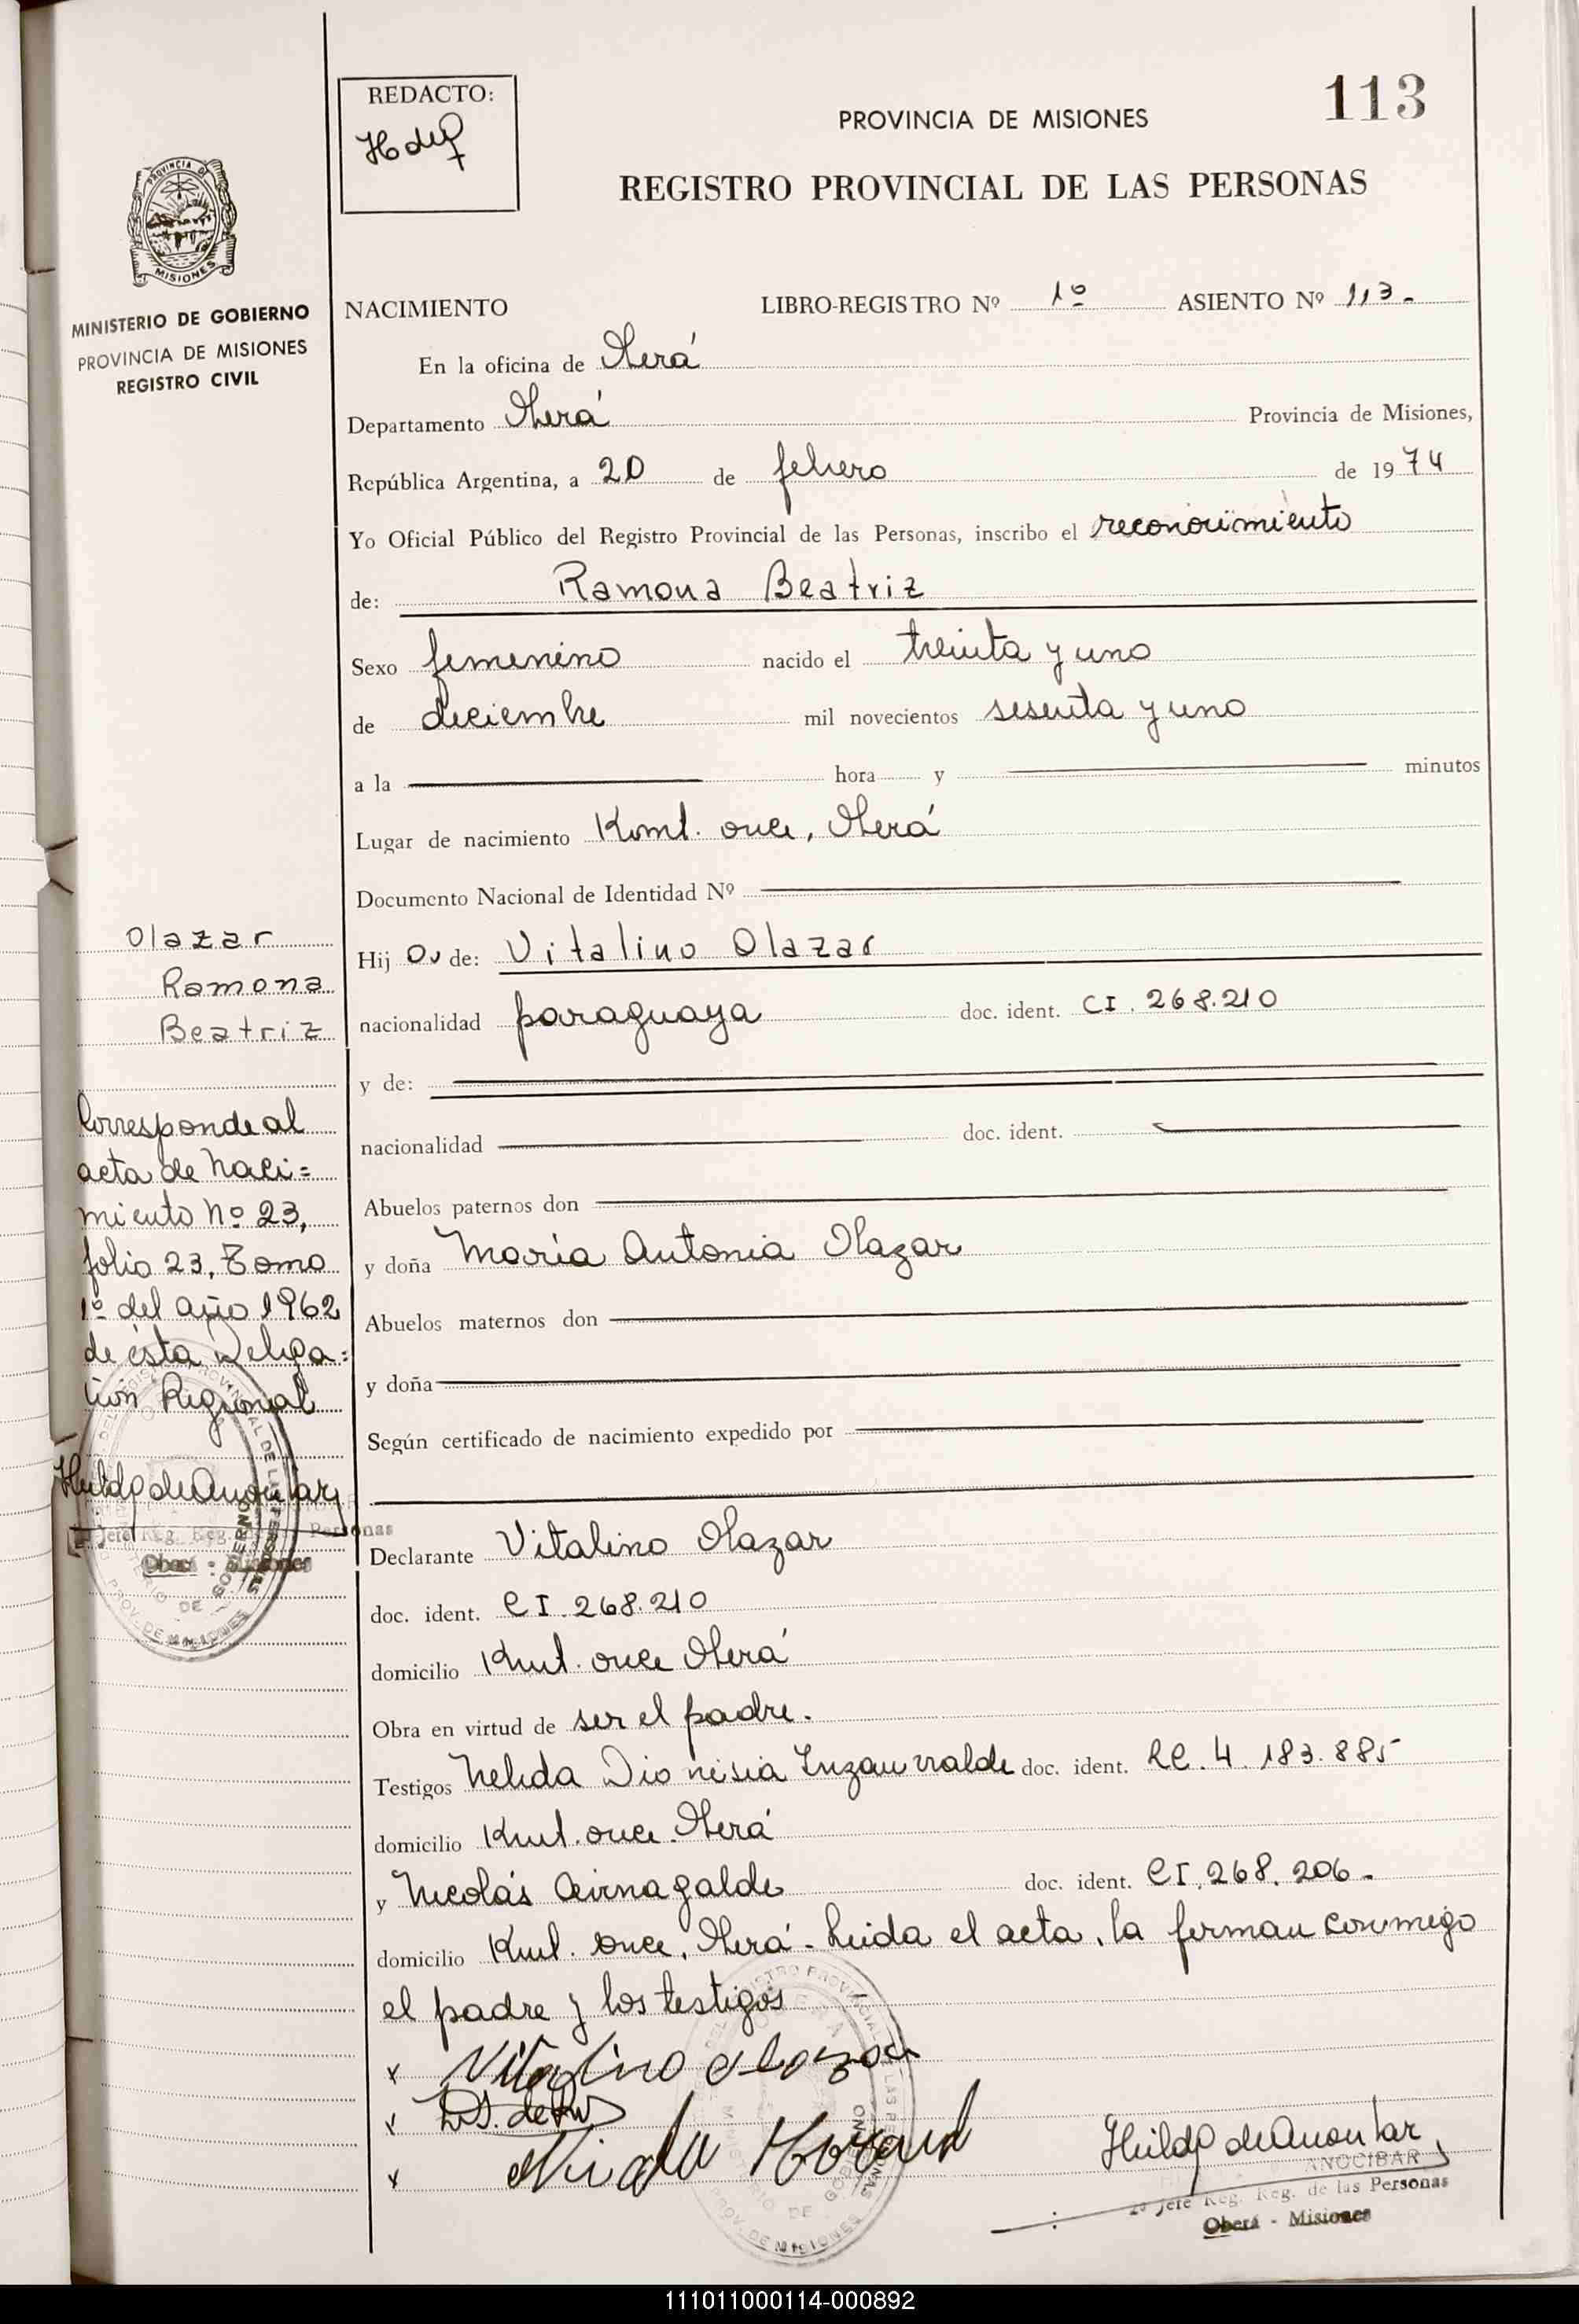 REDACTO:
PROVINCIA DE MISIONES
113
REGISTRO PROVINCIAL DE LAS PERSONAS
PROVINCIA DE
MISIONES
MINISTERIO DE GOBIERNO
PROVINCIA DE MISIONES
REGISTRO CIVIL
NACIMIENTO LIBRO-REGISTRO Nº 1º ASIENTO Nº 113.
En la oficina de Oberá
Departamento Oberá Provincia de Misiones,
República Argentina, a 20 de febrero de 1974
Yo Oficial Público del Registro Provincial de las Personas, inscribo el reconocimiento
de: Ramona Beatriz
Sexo femenino nacido el treinta y uno
de deciembre mil novecientos sesenta y uno
a la hora y minutos
Lugar de nacimiento Kmt. once, Oberá
Documento Nacional de Identidad Nº
Hij a de: Vitalino Olazar
nacionalidad paraguaya doc. ident. CI. 268.210
y de:
nacionalidad doc. ident.
Abuelos paternos don
y doña María Antonia Olazar
Abuelos maternos don
y doña
Según certificado de nacimiento expedido por
Declarante Vitalino Olazar
doc. ident. CI. 268.210
domicilio Kmt. once Oberá
Obra en virtud de ser el padre.
Testigos Nelida Dionisia Inzaurralde doc. ident. LC. 4.183.885
domicilio Kmt. once. Oberá
y Nicolás doc. ident. CI. 268.206.-
domicilio Kmt. once, Oberá - Leida el acta, la firman conmigo
el padre y los testigos
x Vitalino olazar
x
x
ANOCIBAR
Jefe Reg. Reg. de las Personas
Oberá - Misiones
Olazar
Ramona
Beatriz
Corresponde al
acta de Naci=
miento Nº 23,
folio 23, Tomo
1º del año 1962
de ésta Delega=
ción Regional
Jefe Reg. Reg. Personas
Oberá - Misiones
111011000114-000892